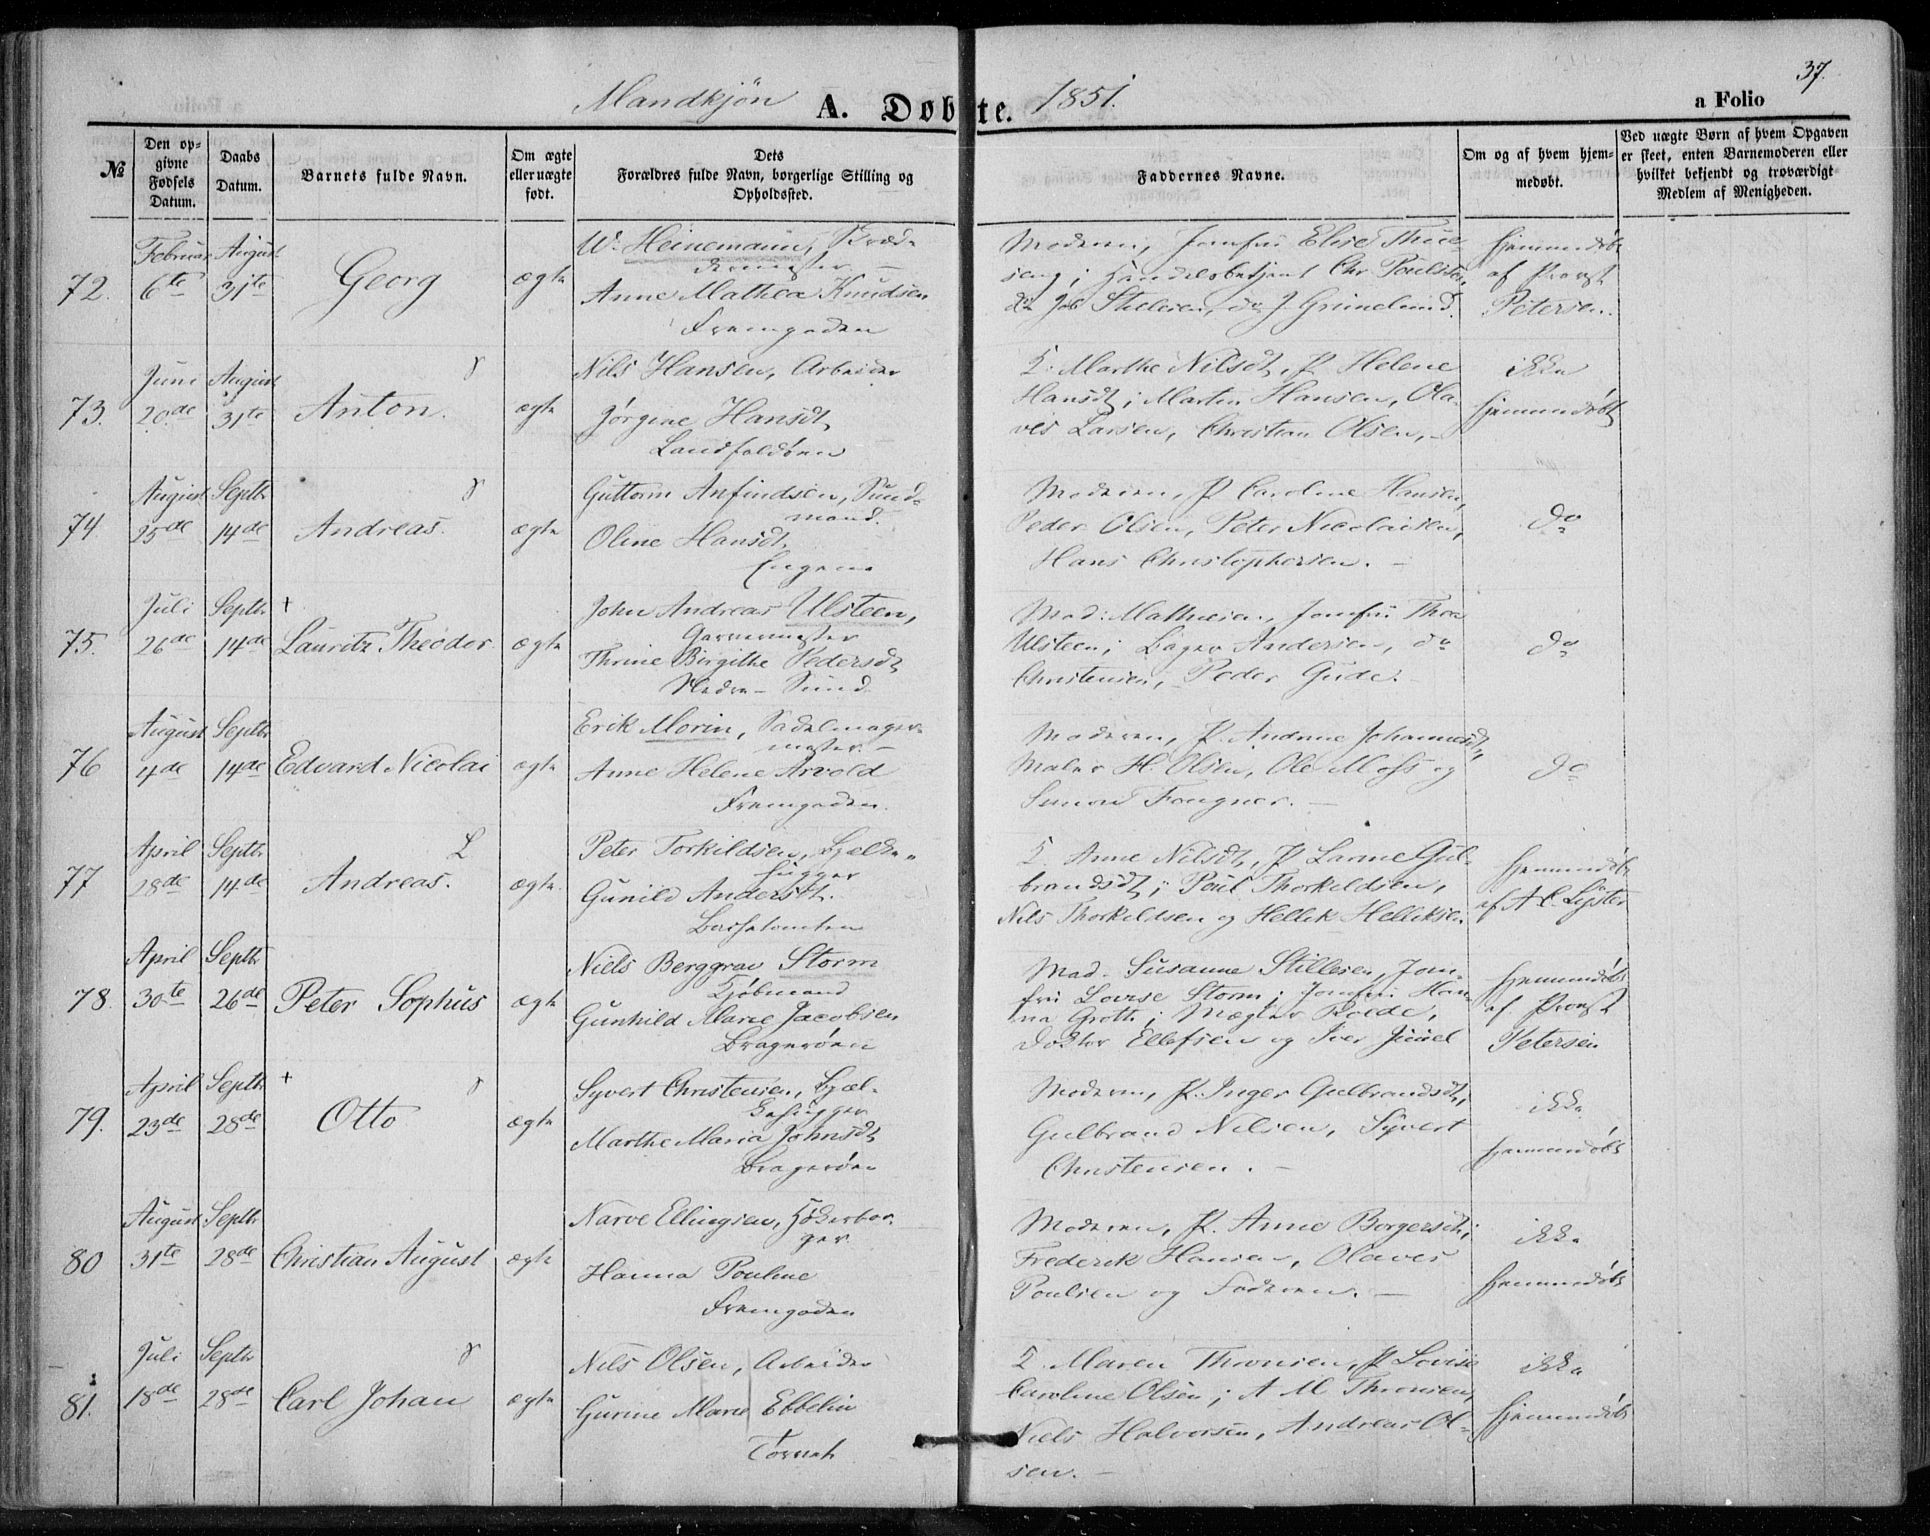 37.
Mandkjön A. Döbte. 1851.
a Folio
№
Den opgivne Fødsels Datum.
Daabs Datum.
Barnets fulde Navn.
Om ægte eller uægte født.
Dets Forældres fulde Navn, borgerlige Stilling og Opholdssted.
Faddernes Navne.
Om og af hvem hjemmedøbt.
Ved uægte Børn af hvem Opgaven er skeet, enten Barnemoderen eller hvilket bekjendt og troværdigt Medlem af Menigheden.
Februar August
72. 6te 31te Georg ægte
W. Heinemann, Skræd-
dermester
Anne Mathea Knudsen
Fremgaden
Moderen, Jomfru Elise Thue-
seng; Handelsbetjent Chr Poulsen,
do Jac Stillesen, do J. Grünelund.
hjemmedøbt
af Provst
Petersen.
Juni August
73. 20de 31te Anton. ægte
Nils Hansen, Arbeider
Jörgine Hansdt
Landfaldöen
K. Marthe Nilsdt, P. Helene
Hansdt; Martin Hansen, Ola-
ves Larsen, Christian Olsen,
ikke
hjemmedøbt
August Septbr
74 25de 14de Andreas. ægte
Guttorm Anfindsen, Sund-
mand.
Oline Hansdt.
Engene
Moderen, P. Caroline Hansen,
Peder Olsen, Peter Nicolaisen,
Hans Christophersen.
do
Juli Septbr +
75. 26de 14de Lauritz Theodor ægte
John Andreas Ulsteen,
Garvermester
Thrine Birgithe Pedersdt
Nedre Sund
Mad: Mathiesen, Jomfru Thea
Ulsteen; Bager Andersen, do
Christensen, Peder Gude.
do
August Septbr
76 4de 14de Edvard Nicolai ægte
Erik Morin, Sadelmager-
mester
Anne Helene Arvold
Fremgaden.
Moderen, P. Andrine Johannesdt,
Maler H. Olsen, Ole Moss og
Simon Fougner.
do
April Septbr
77 28de 14de Andreas. ægte.
Peter Torkildsen, Bjelke-
hugger
Gunild Andersdt.
K. Anne Nilsdt, P. Larine Gul-
brandsdt; Poul Thorkeldsen,
Nils Thorkildsen og Hellik Helliksen
hjemmedøbt
af A. C. Lyster
April Septbr
78. 30te 26de Peter Sophus ægte
Niels Berggrav Storm
Kjöbmand
Gunhild Marie Jacobsen
Bragerøen
Mad. Susanne Stillesen, Jom-
fru Lovise Storm; Jomfru Han-
na Groth; Mægler Roede,
Doktor Ellefsen og Iver Juuel
hjemmedøbt
af Provst
Petersen
April Septbr +
79. 23de 28de Otto ægte
Syvert Christensen, Bjel-
kehugger
Marthe Maria Johnsdt
Bragerøen
Moderen, P. Inger Gulbrandsdt;
Gulbrand Nilsen, Syvert
Christensen.
ikke
hjemmedøbt
August Septbr
80 31te 28de Christian August ægte
Narve Ellingsen, Høkerbor-
ger
Hanna Pouline
Fremgaden
Moderen, P. Anne Borgersdt;
Frederik Hansen, Olaves
Poulsen og Faderen.
ikke
hjemmedøbt
Juli Septbr
81. 18de 28de Carl Johan ægte
Nils Olsen, Arbeider
Gurine Marie Ebbelin
Tørnet
K. Maren Thronsen, P. Lovise
Caroline Olsen; A M Thronsen,
Niels Halvorsen, Andreas Ol-
sen.
ikke
hjemmedøbt